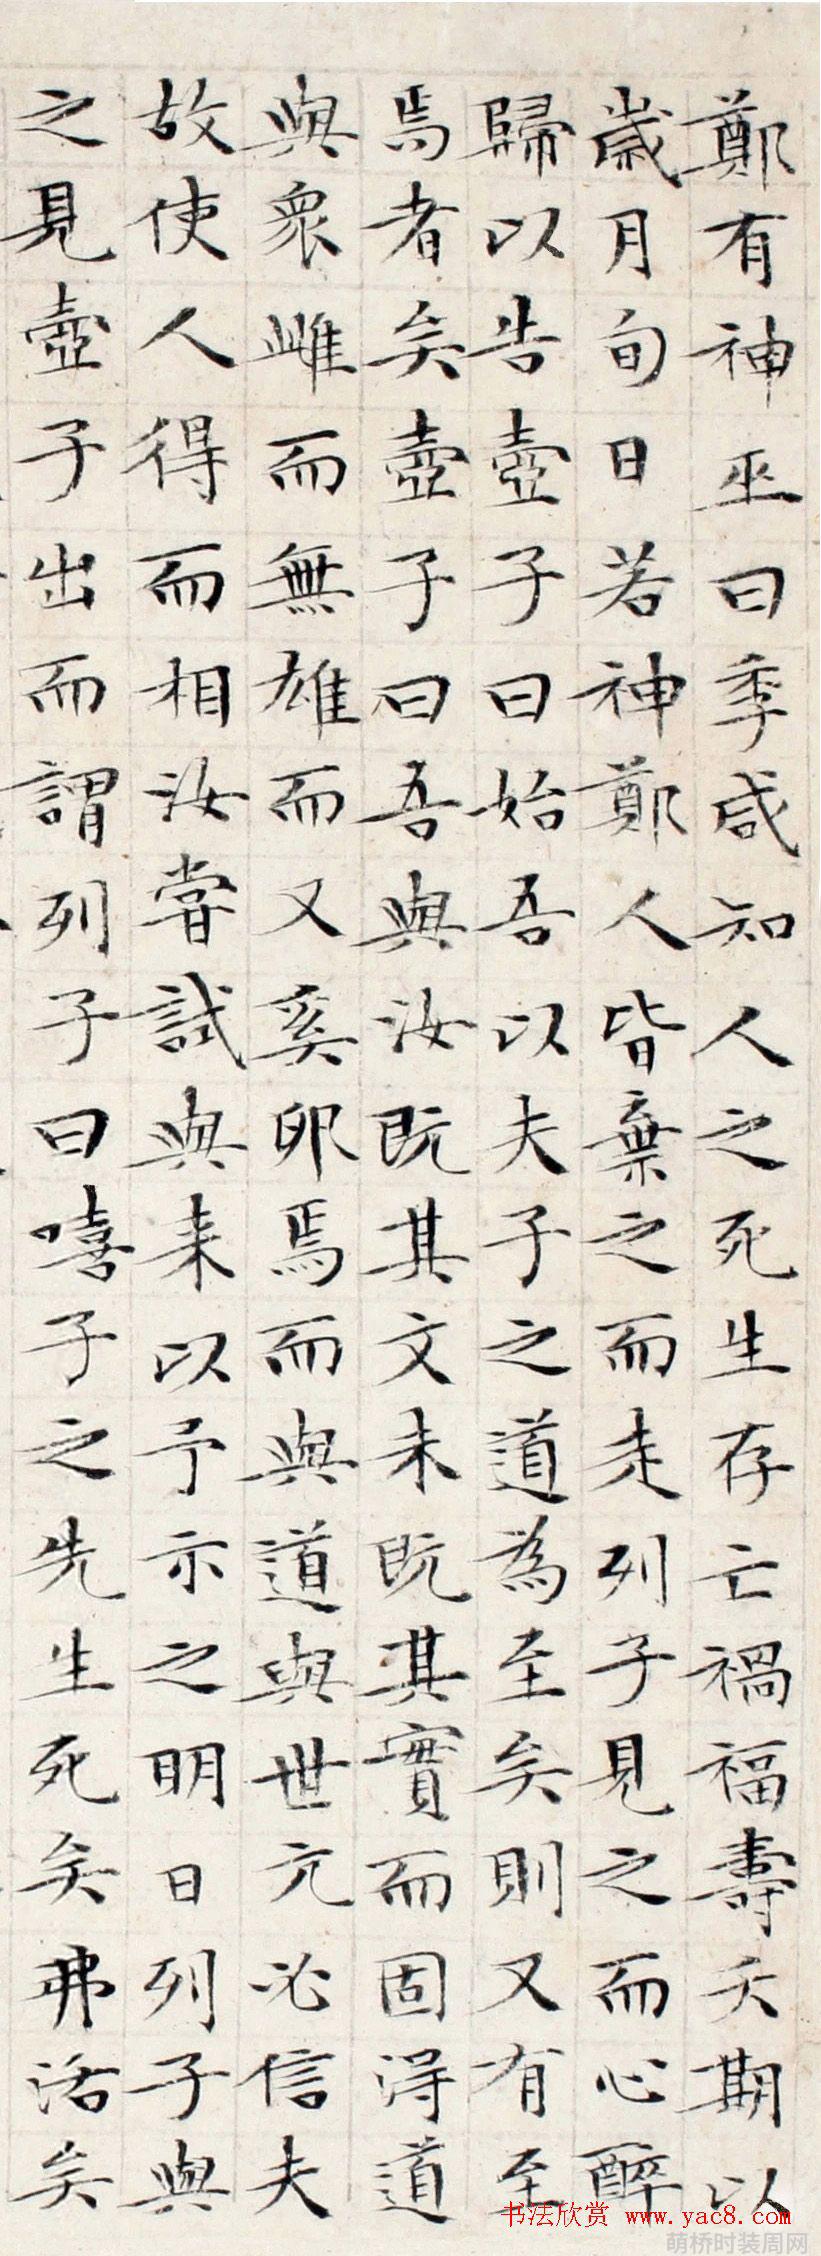 鄭有神巫曰季咸知人之死生存亡禍福壽夭期以
歲月旬日若神鄭人皆棄之而走列子見之而心醉
歸以告壺子曰始吾以夫子之道為至矣則又有至
焉者矣壺子曰吾與汝既其文未既其實而固得道
與衆雌而無雄而又奚卵焉而與道與世亢必信夫
故使人得而相汝嘗試與来以予示之明日列子與
之見壺子出而謂列子曰嘻子之先生死矣弗活矣
书法欣赏 www.yac8.com
萌桥时装周网